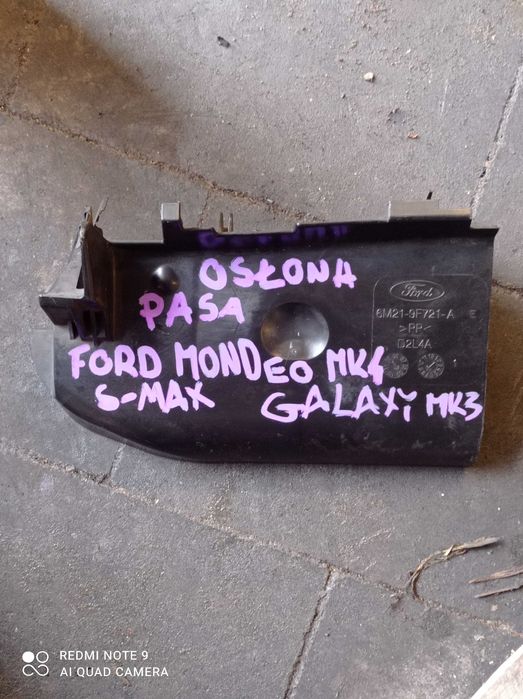 OSŁONA
PASA
FORD MONDEO MK4
S-MAX GALAXY MK3
Ford
6M21-9F721-A E
>PP<
D2L4A
REDMI NOTE 9
AI QUAD CAMERA